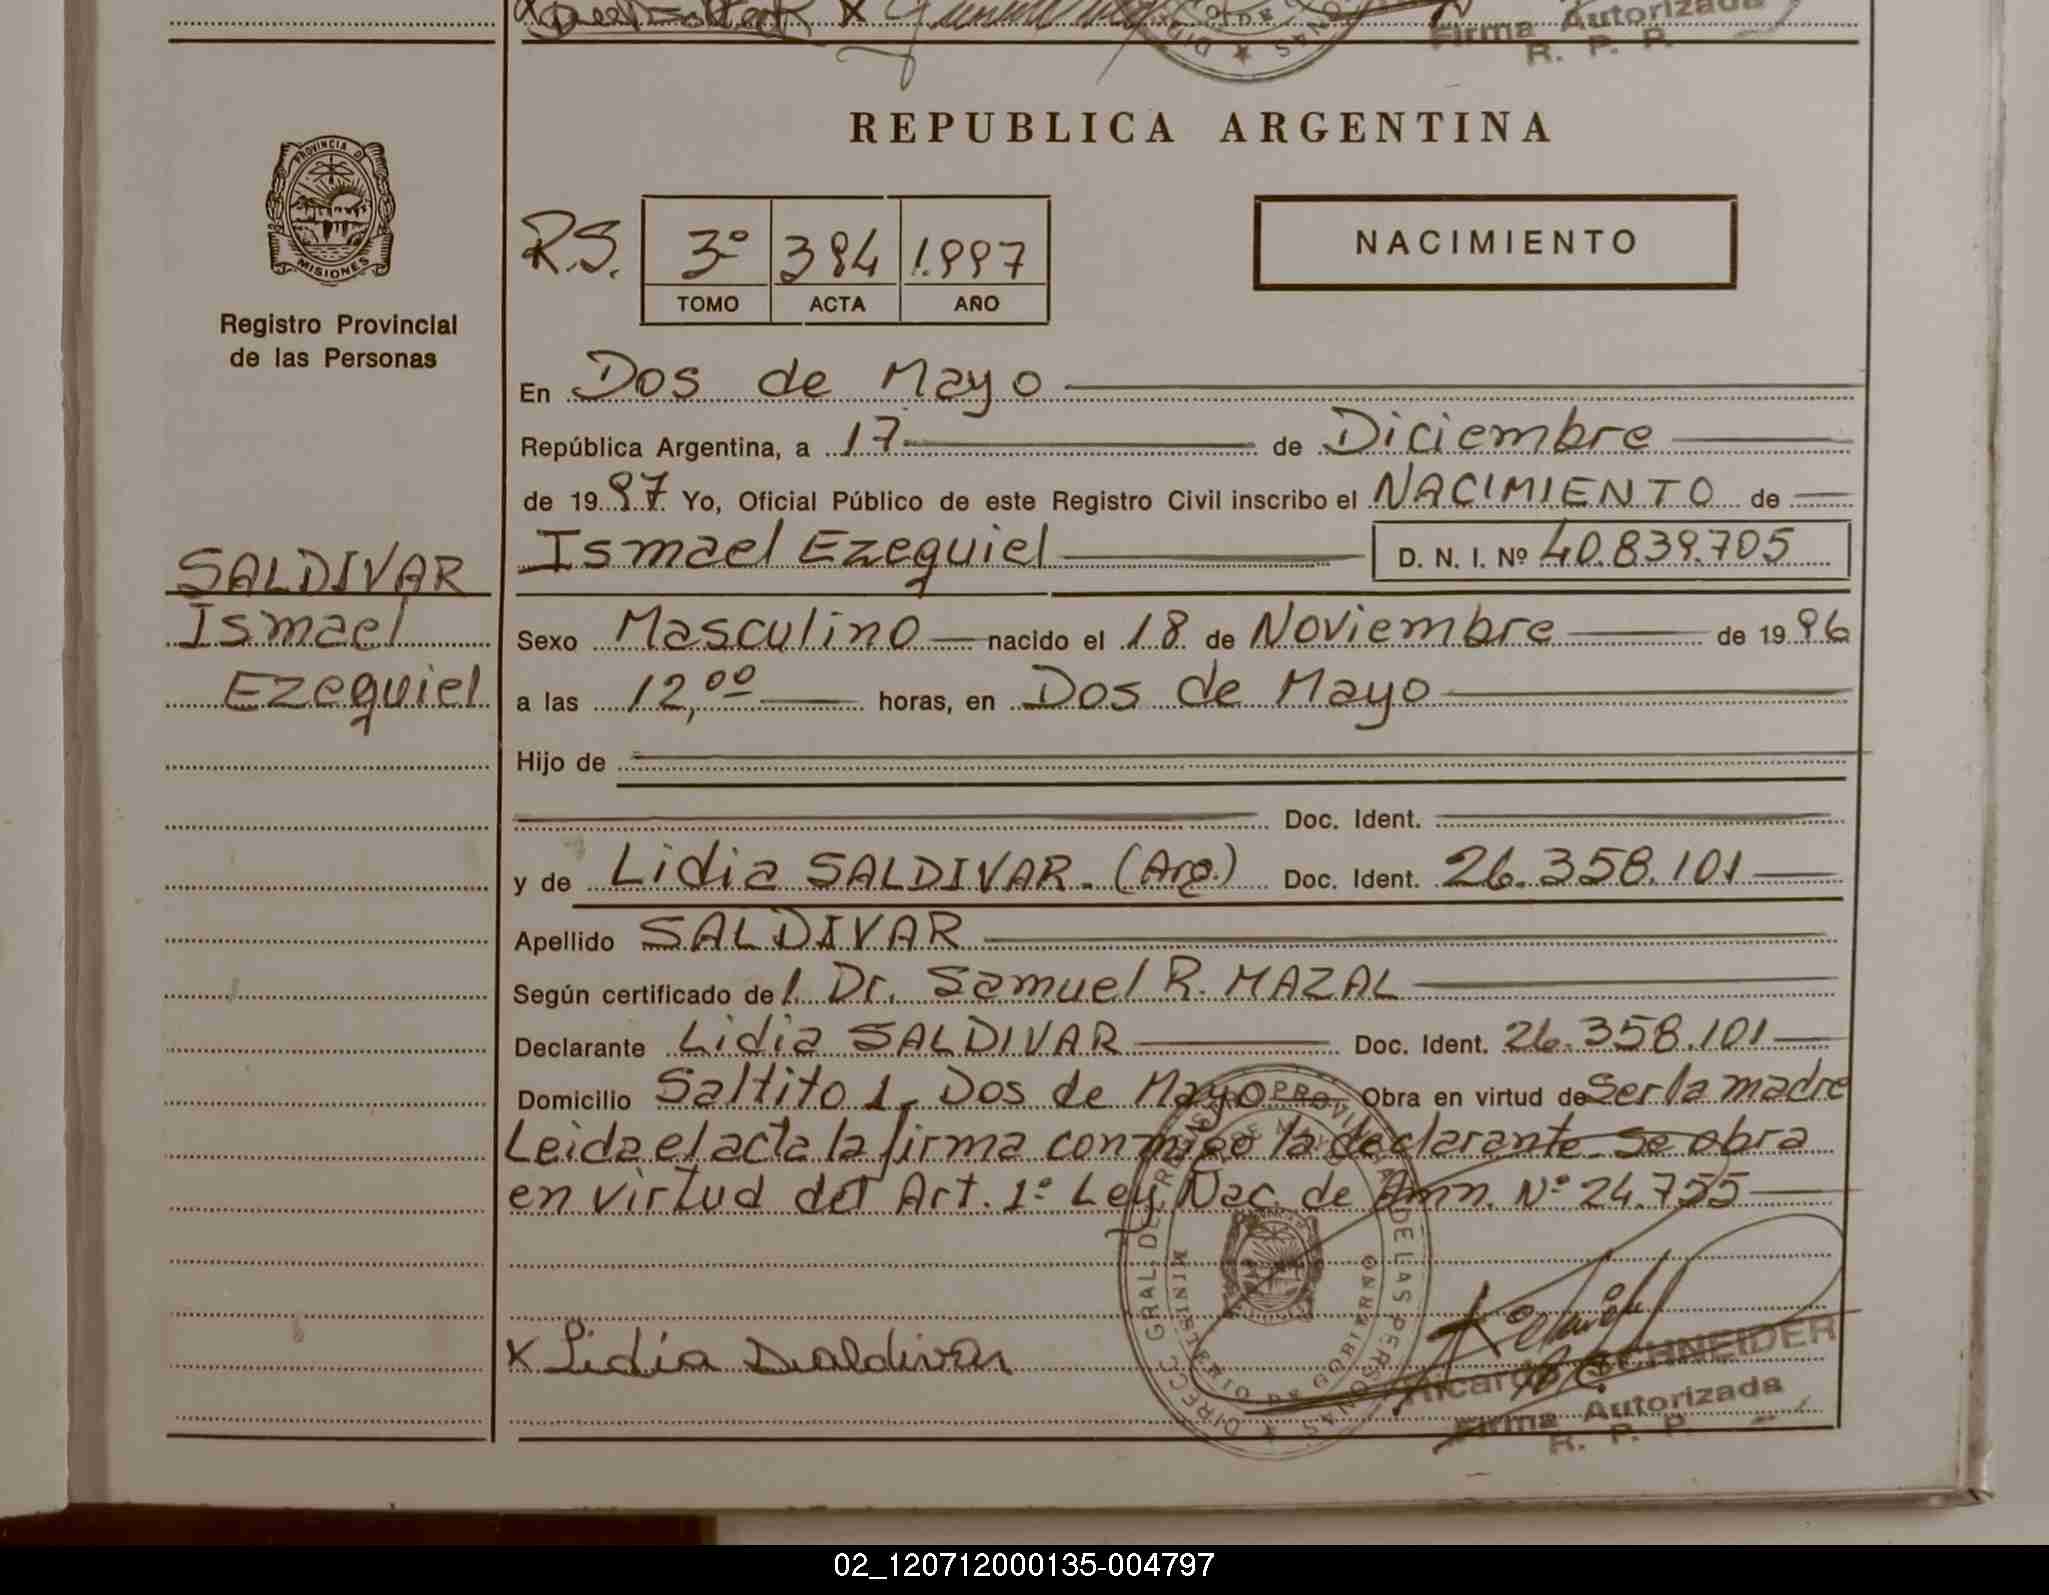 Firma Autorizada
R. P. P.
REPUBLICA ARGENTINA
PROVINCIA D
MISIONES
Registro Provincial
de las Personas
R.S. 3º 394 1.997
TOMO ACTA AÑO
NACIMIENTO
En Dos de Mayo
República Argentina, a 17 de Diciembre
de 1997 Yo, Oficial Público de este Registro Civil inscribo el NACIMIENTO de
Ismael Ezequiel D. N. I. Nº 40.839.705
SALDIVAR
Ismael
Ezequiel
Sexo Masculino nacido el 18 de Noviembre de 1996
a las 12,00 horas, en Dos de Mayo
Hijo de
Doc. Ident.
y de Lidia SALDIVAR. (Arg.) Doc. Ident. 26.358.101
Apellido SALDIVAR
Según certificado del Dr. Samuel R. MAZAL
Declarante Lidia SALDIVAR Doc. Ident. 26.358.101
Domicilio Saltito 1, Dos de Mayo Obra en virtud de Ser la madre
Leida el acta la firma conmigo la declarante. Se obra
en virtud del Art. 1º Ley Nac. de Amn. Nº 24.755
DIRECC. GRAL. DEL REGISTRO PROVINCIAL DE LAS PERSONAS
MINISTERIO DE GOBIERNO
DOS DE MAYO
x Lidia Saldivar
Ricardo SCHNEIDER
Firma Autorizada
R. P. P.
02_120712000135-004797